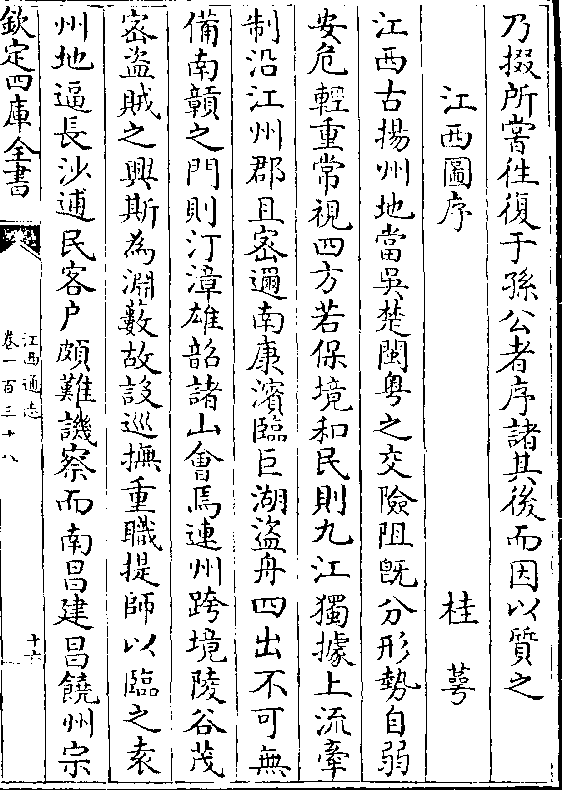 乃掇所嘗往復于孫公者序諸其後而因以質之
江西圖序 桂萼
江西古揚州地當吳楚閩粤之交險阻旣分形勢自弱
安危輕重常視四方若保境和民則九江獨據上流牽
制沿江州郡且密邇南康濱臨巨湖盜舟四出不可無
備南贛之門則汀漳雄韶諸山會焉連州跨境陵谷茂
密盜賊之興斯為淵藪故設巡撫重職提師以臨之袁
州地逼長沙逋民客户頗難譏察而南昌建昌饒州宗
欽定四庫全書
江西通志
卷一百三十八
十六